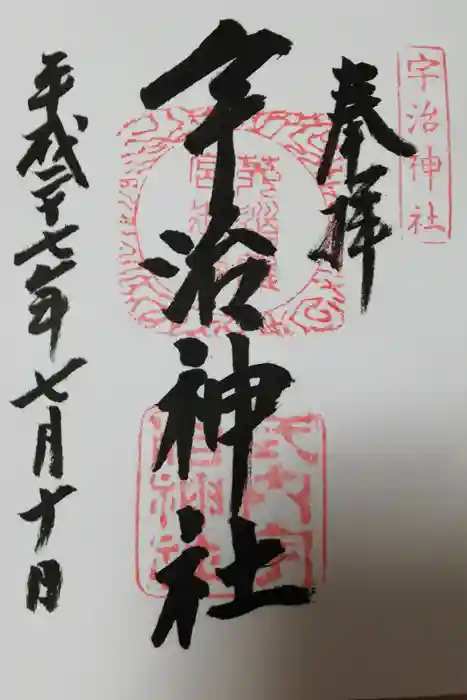 宇治神社
奉拝
宇治神社
平成二十七年七月十日